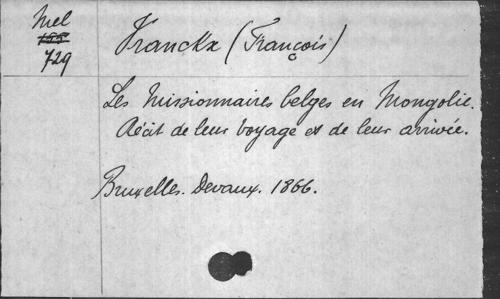 Mel
729
Franckx (François)
Les Missionnaires belges en Mongolie.
Récit de leur voyage et de leur arrivée.
Bruxelles. Devaux. 1866.